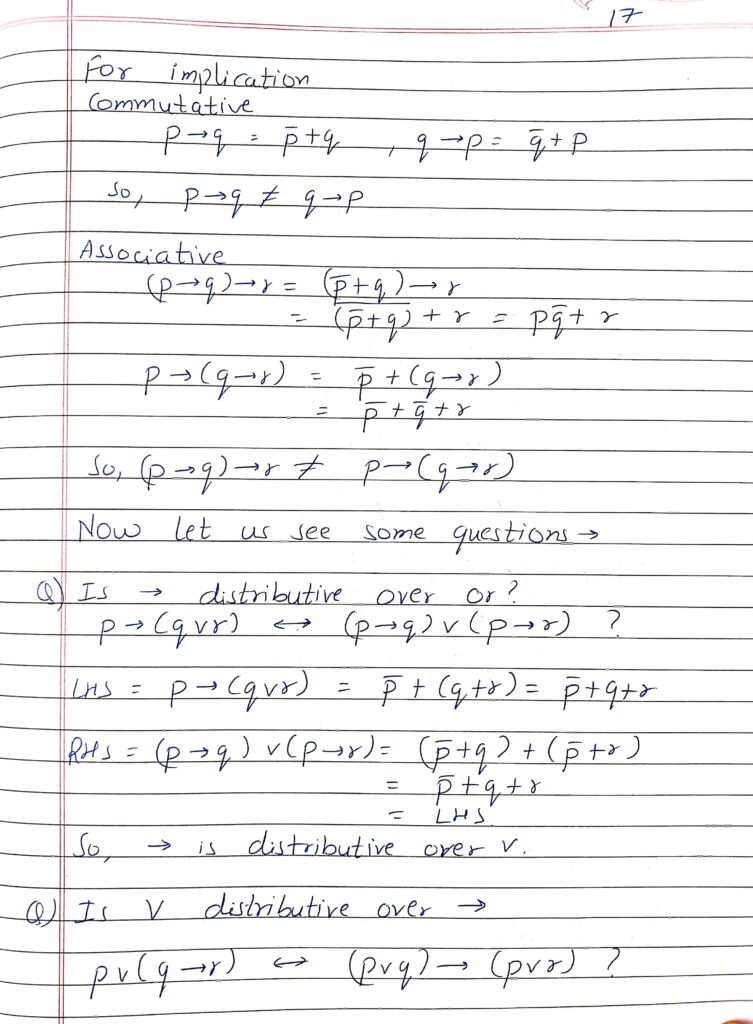 17
For implication
Commutative
p→q = p̄+q , q→p = q̄+p
So, p→q ≠ q→p
Associative
(p→q)→r = (p̄+q)→r
= \overline{(p̄+q)} + r = pq̄+r
p→(q→r) = p̄+(q→r)
= p̄+q̄+r
So, (p→q)→r ≠ p→(q→r)
Now let us see some questions →
Q) Is → distributive over or?
p→(q∨r) ↔ (p→q)∨(p→r) ?
LHS = p→(q∨r) = p̄+(q+r) = p̄+q+r
RHS = (p→q)∨(p→r) = (p̄+q)+(p̄+r)
= p̄+q+r
= LHS
So, → is distributive over ∨.
Q) Is ∨ distributive over →
p∨(q→r) ↔ (p∨q)→(p∨r) ?